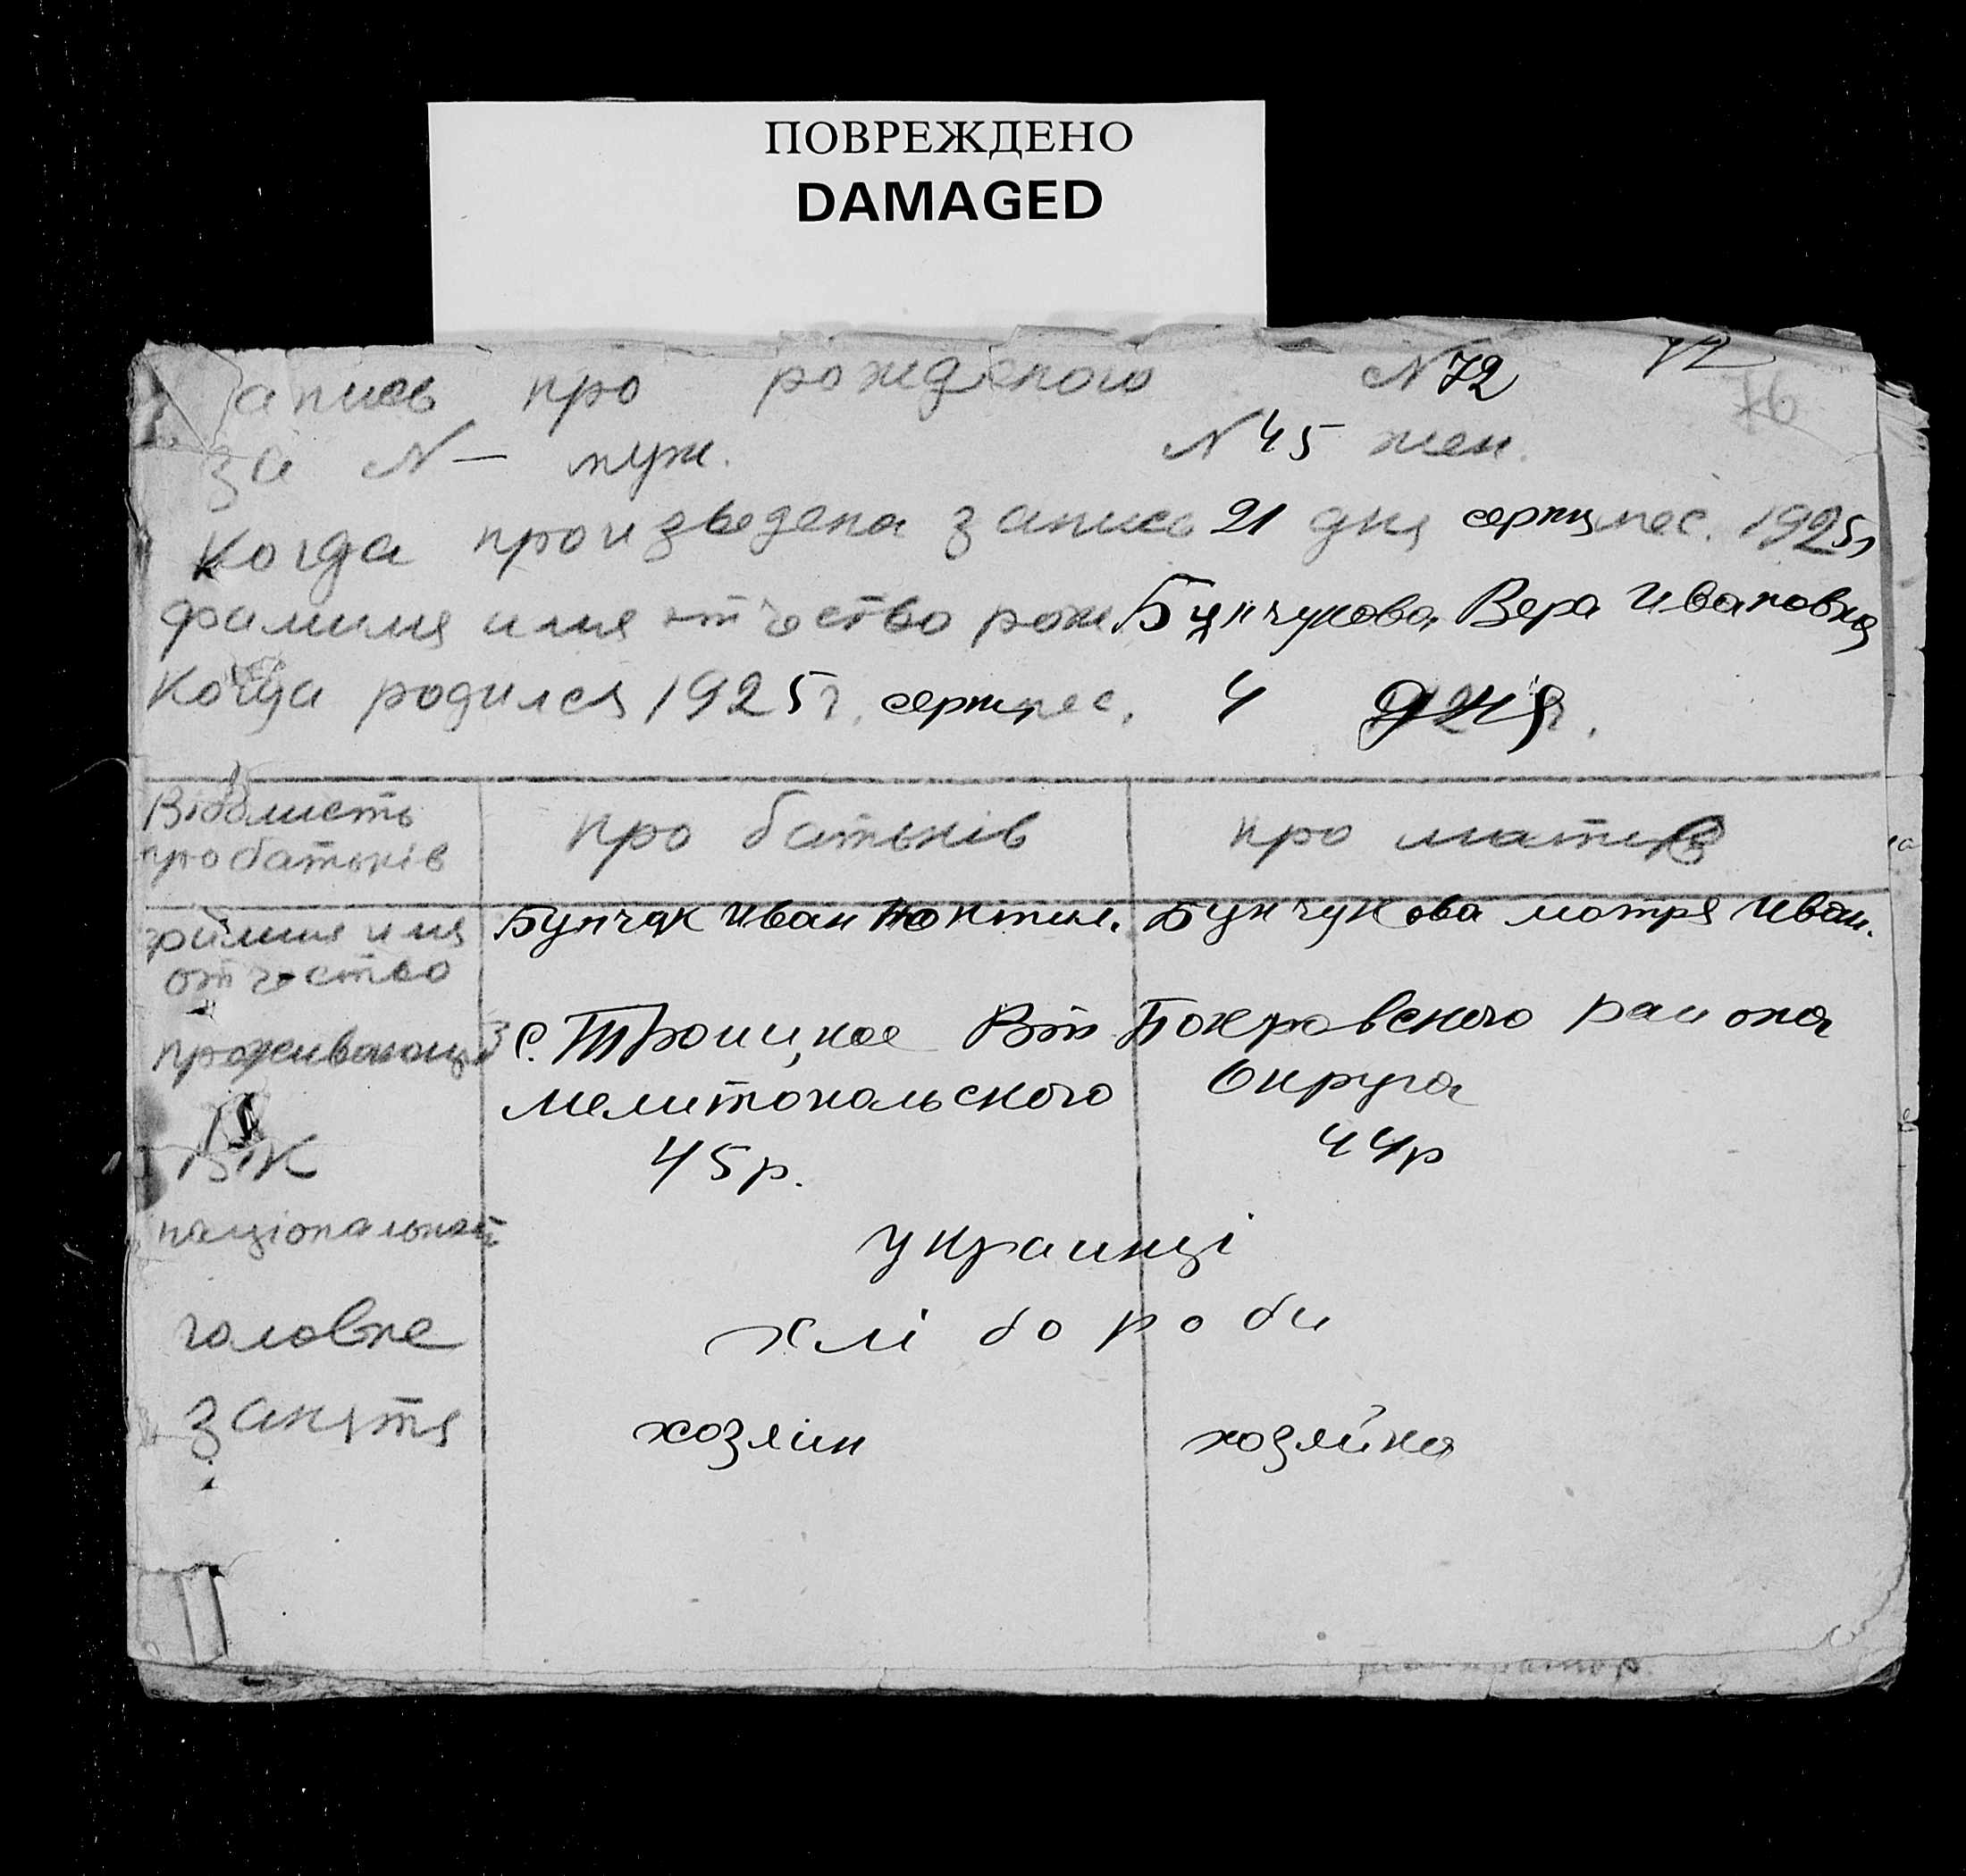 ПОВРЕЖДЕНО
DAMAGED
Запись про рожденого N 72 72
76
за N — муж. N 45 жен.
Когда произведена запись 21 дня серпня мес. 1925г
фамилия имя отчество рож. Бунчукова Вера Ивановна
Когда родился 1925г. серпня мес. 4 дня
Відомисть про батьків
про батьків
про матирів
фамилия имя отчество
Бунчук Иван
Бунчукова Мотря Иван.
проживающи
с. Троицкое Втп Покровского раиона
Мелитопольского Округа
вік
45р.
44р
національність
украинці
головне
хлібороби
заняття
хозяин
хозяйка